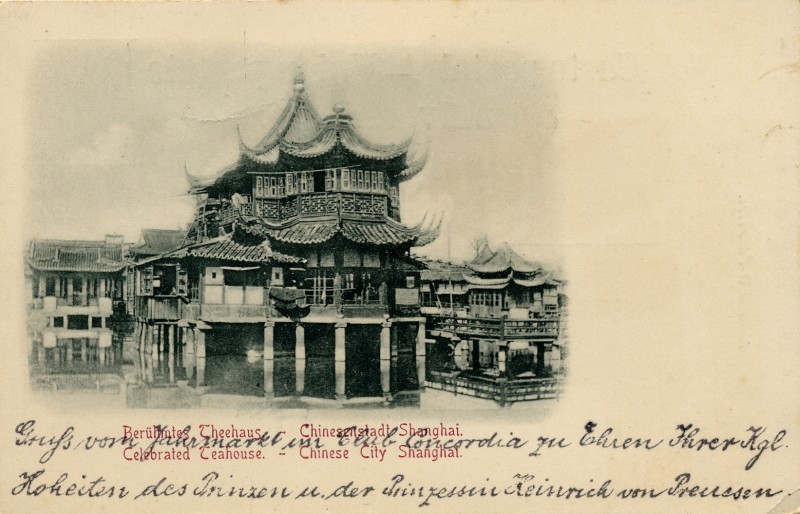 Berühmtes Theehaus. - Chinesenstadt Shanghai.
Celebrated Teahouse. - Chinese City Shanghai.
Gruss vom Jahrmarkt im Club Concordia zu Ehren Ihrer Kgl.
Hoheiten des Prinzen u. der Prinzessin Heinrich von Preussen